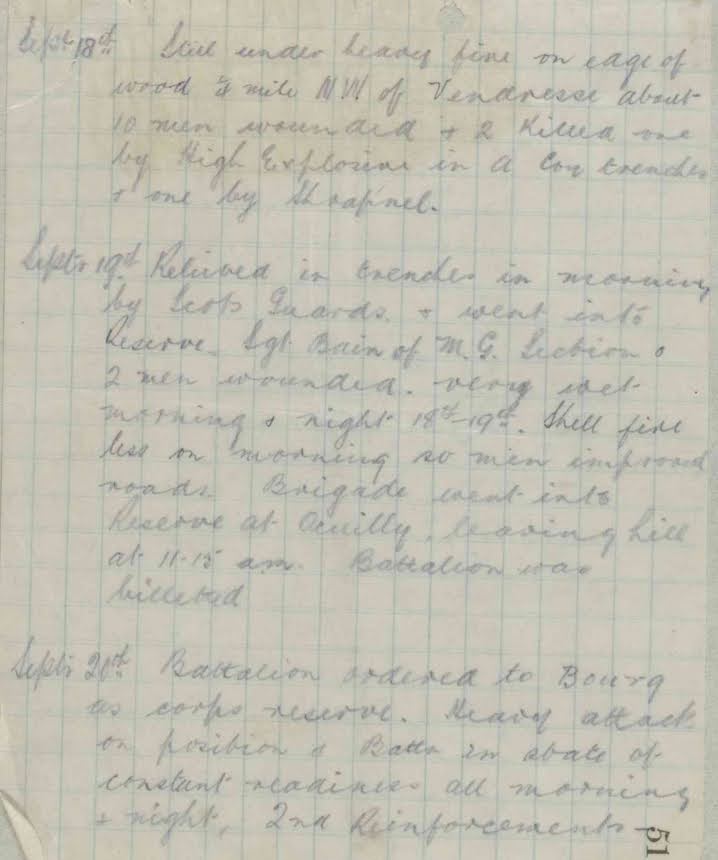 Sept 18th Still under heavy fire on edge of
wood ¾ mile NW of Vendresse about
10 men wounded + 2 Killed one
by High Explosive in A Coy trenches
+ one by Shrapnel.
Sept 19th Relieved in trenches in morning
by Scots Guards. + went into
Reserve. Sgt Bain of M.G. Section &
2 men wounded. very wet
morning & night 18th-19th. Shell fire
less on morning so men improved
roads. Brigade went into
Reserve at Oeuilly, leaving hill
at 11-15 am. Battalion was
billeted
Sept 20th Battalion ordered to Bourg
as corps reserve. Heavy attack
on position & Battn in state of
constant readiness all morning
+ night, 2nd Reinforcements
51